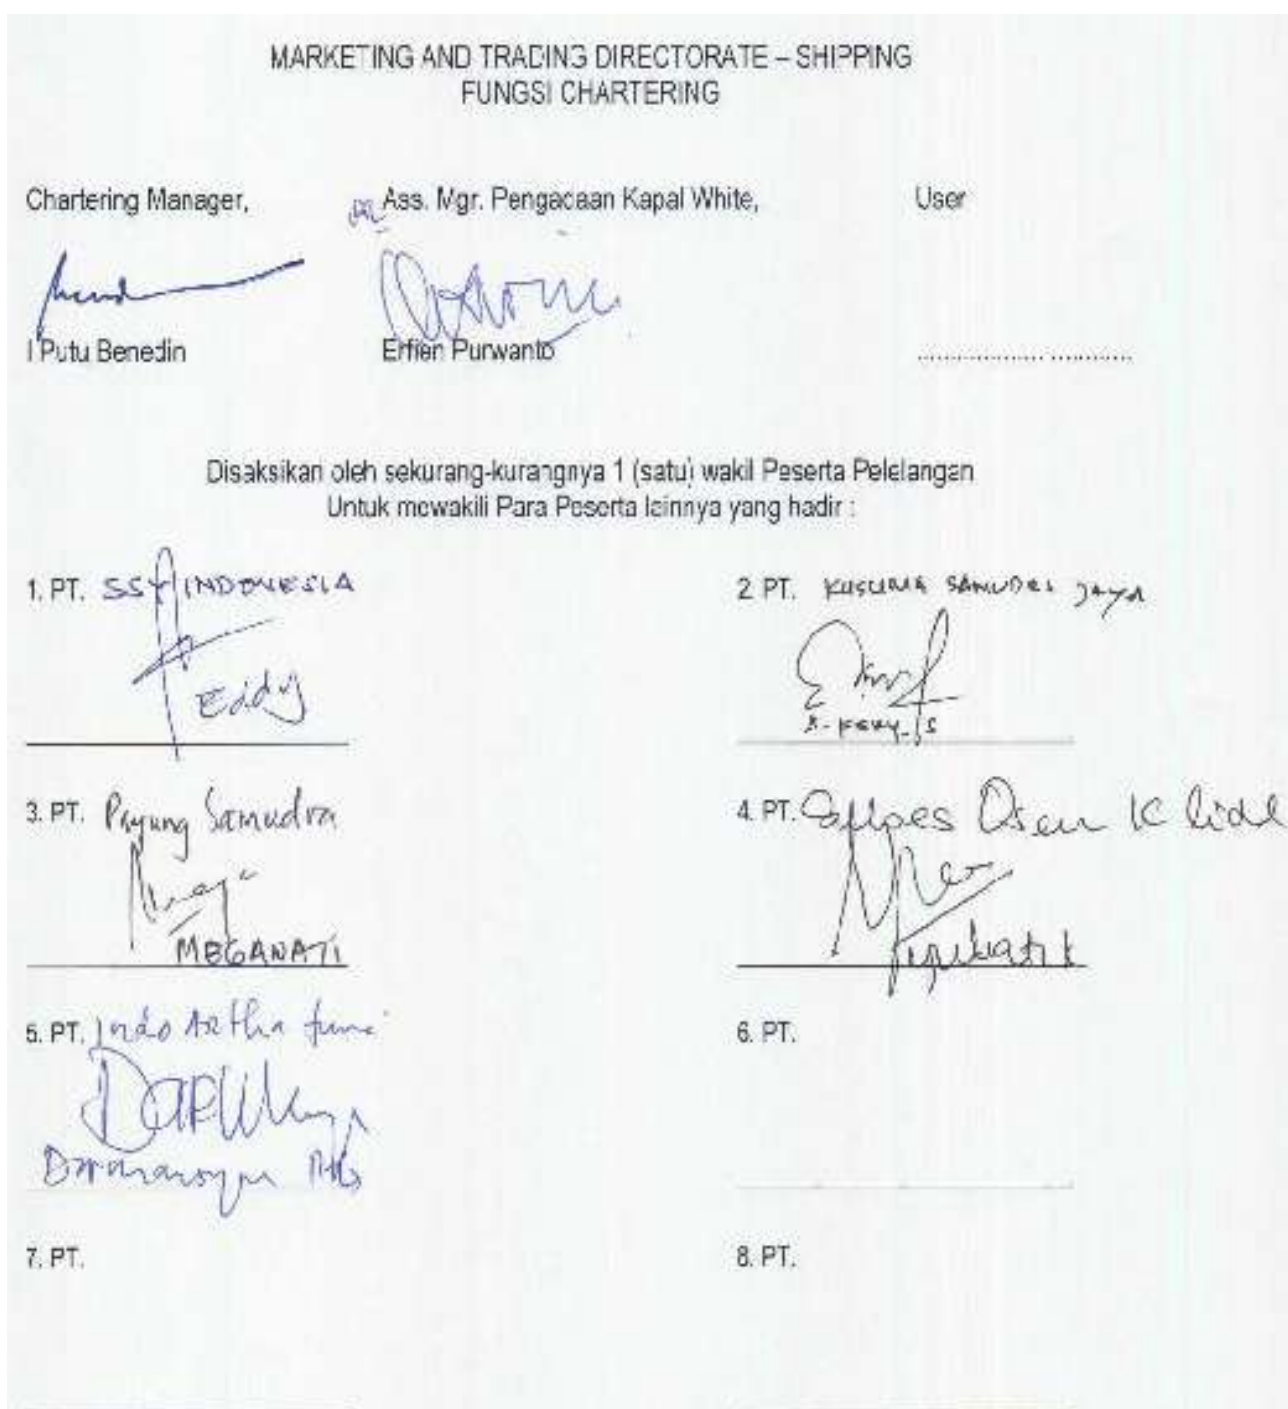 MARKETING AND TRADING DIRECTORATE – SHIPPING
FUNGSI CHARTERING
Chartering Manager,
Ass. Mgr. Pengadaan Kapal White,
User
I Putu Benedin
Erfien Purwanto
Disaksikan oleh sekurang-kurangnya 1 (satu) wakil Peserta Pelelangan
Untuk mewakili Para Peserta lainnya yang hadir :
1. PT. SSY INDONESIA
Eddy
2 PT. KUSUMA SAMUDRA JAYA
3. PT. Payung Samudra
MEGAWATI
4. PT.
5. PT. Indo Artha
6. PT.
7. PT.
8. PT.